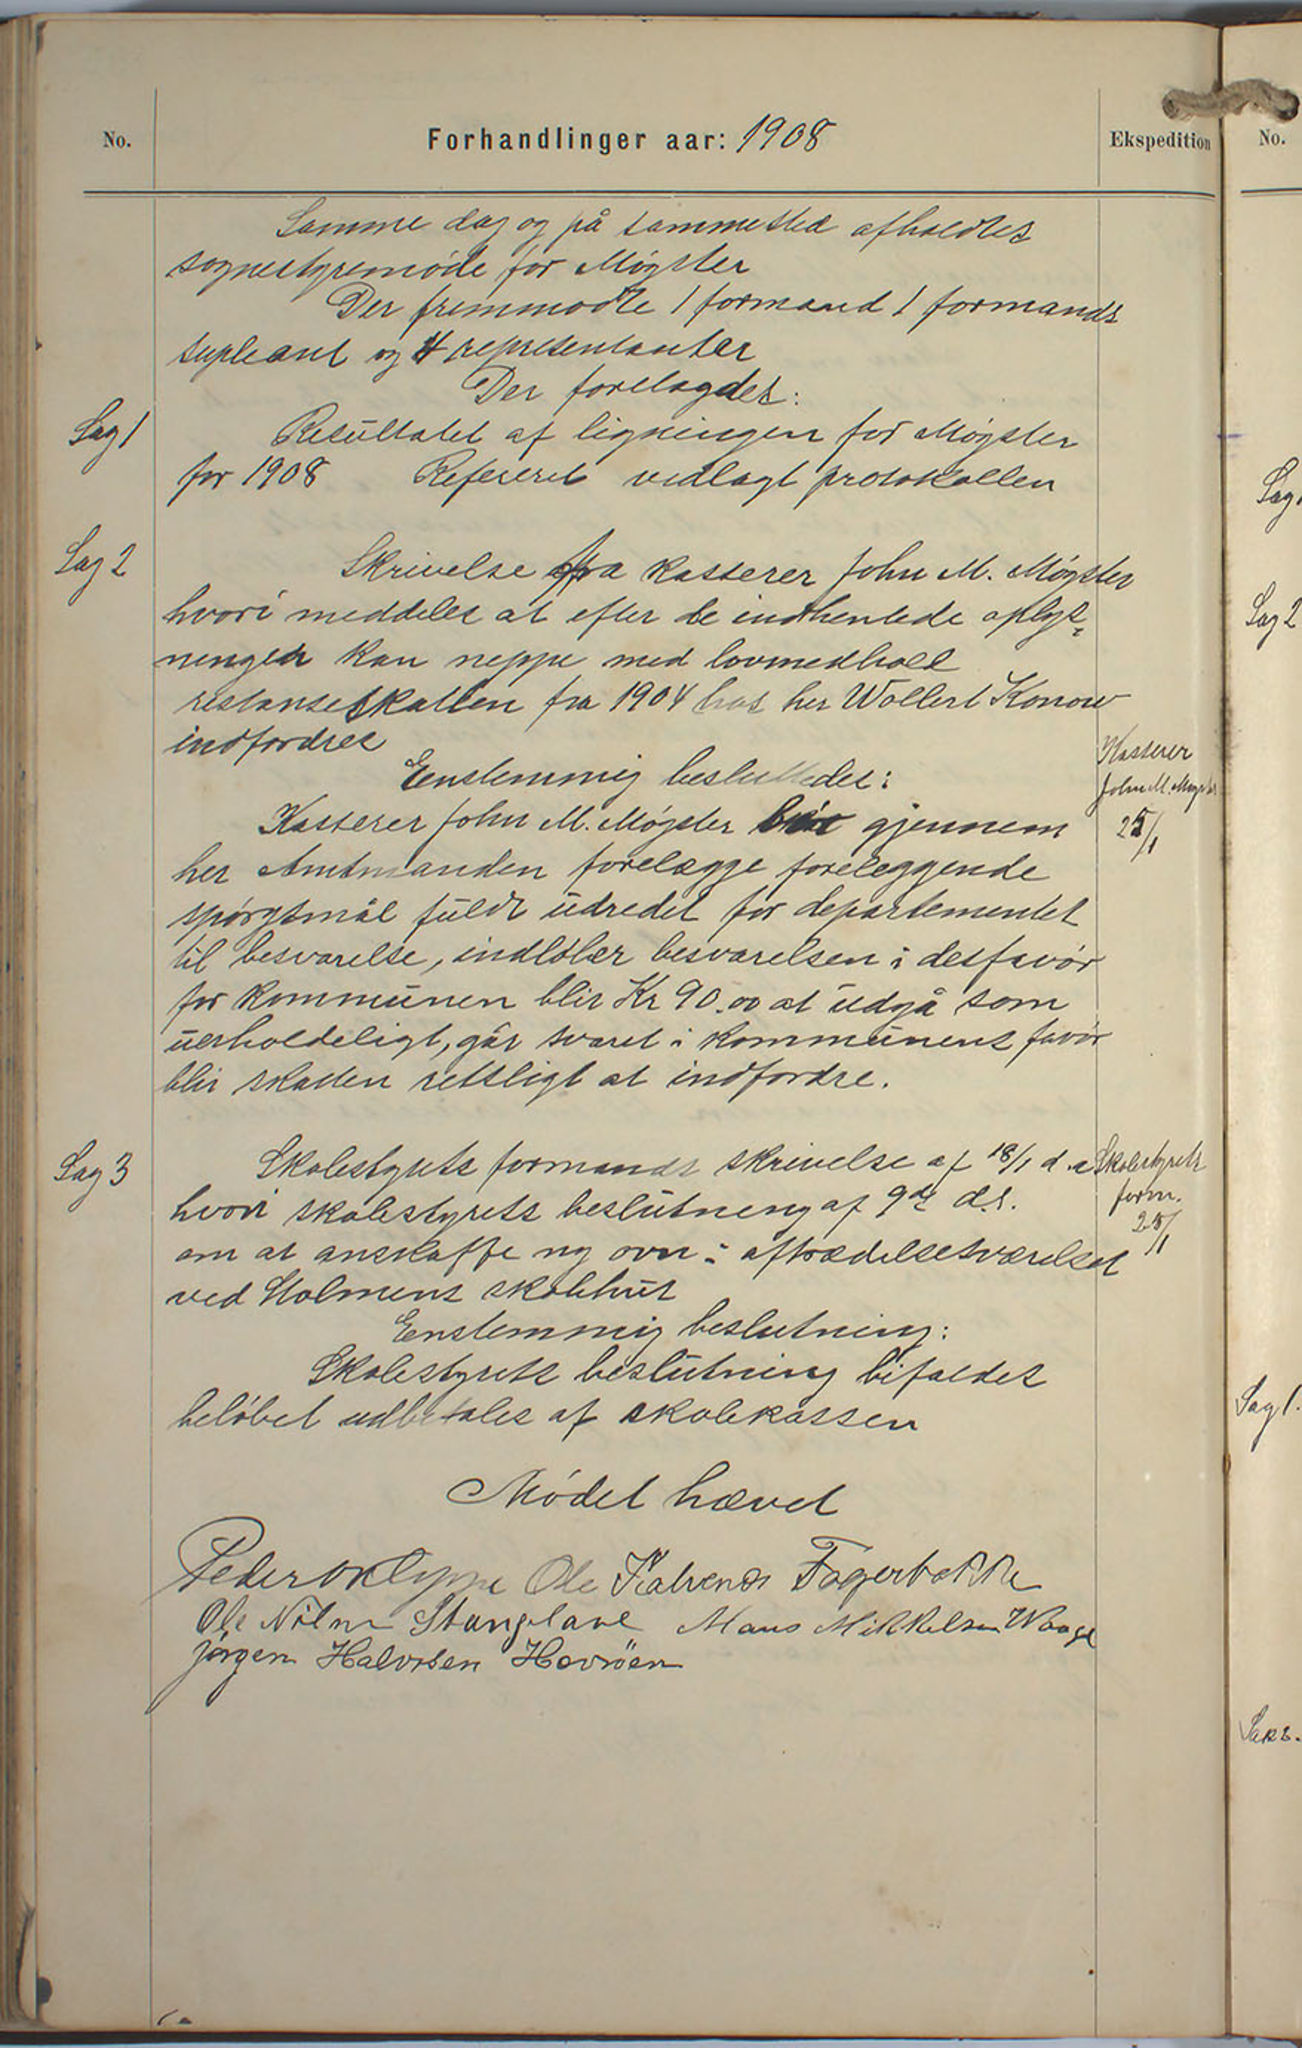 No.
Forhandlinger aar: 1908
Ekspedition
No.
Samme dag og på sammested afholdtes
sognestyremöde for Møgster
Der fremmødte 1 formand 1 formands
supleant og 4 representanter
Der forelagdes:
Sag 1
Resultatet af ligningen for Møgster
for 1908 Refereret vedlagt protokollen
Sag 2
Skrivelse fra kasserer John M. Møgster
hvori meddeles at efter de indhentede oplys=
ninger kan neppe med lovmedhold
restanseskatten fra 1904 hos her Wollert Konow
indfordres
Enstemmig besluttedes:
Kasserer
John M. Møgster
25/1
Kasserer John M. Møgster bør gjennem
her Amtmanden forelægge foreleggende
spørgsmål fuldt udredet for departementet
til besvarelse, indløber besvarelsen i desfavör
for kommunen blir Kr 90.00 at udgå som
uerholdeligt, går svaret i kommunens favör
blir skatten retsligt at indfordre.
Sag 3
Skolestyrets formands skrivelse af 18/1 d.a
Skolestyrets
form.
25/1
hvori skolestyrets beslutning af 9de d.s.
om at anskaffe ny ovn i aftrædelsesværelset
ved Stolmens skolehus
Enstemmig beslutning:
Skolestyrets beslutning bifaldes
beløbet udbetales af skolekassen
Mödet hævet
Peder Klyppe Ole Kalvenes Fagerbakke
Ole Nilsen Stangeland Mons Mikkelsen Waage
Jørgen Halvorsen Hevrøen
Sag 1
Sag 2
Sag 1.
Sak 2.